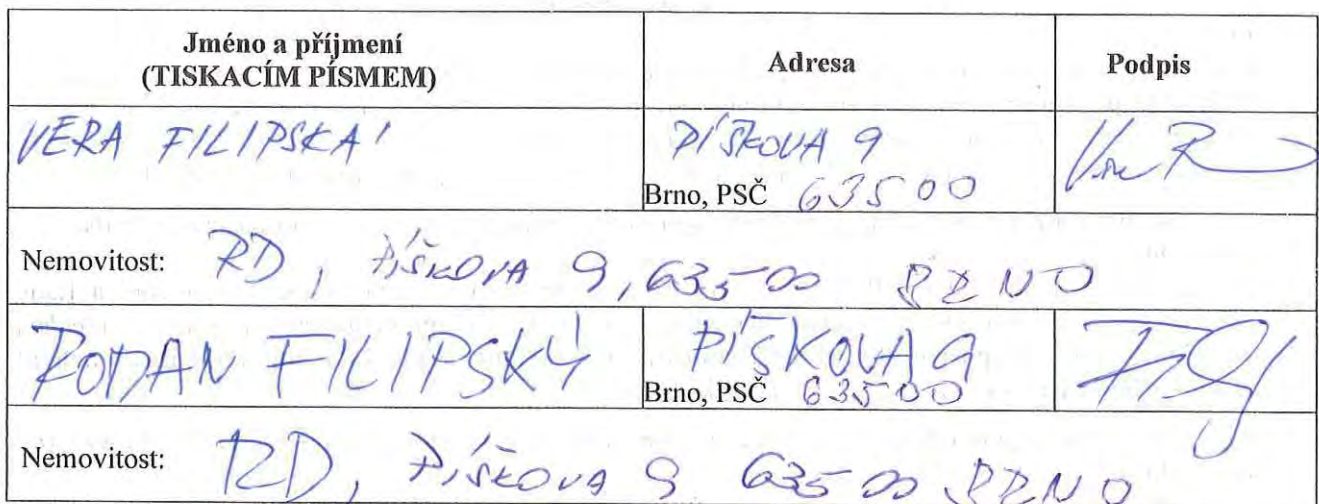 Jméno a příjmení
(TISKACÍM PÍSMEM)
Adresa
Podpis
VĚRA FILIPSKÁ
PÍŠKOVA 9
Brno, PSČ 63500
Nemovitost: RD, PÍŠKOVA 9, 63500 BRNO
FILIPSKÝ
PÍŠKOVA 9
Brno, PSČ 63500
Nemovitost: RD, PÍŠKOVA 9 63500 BRNO